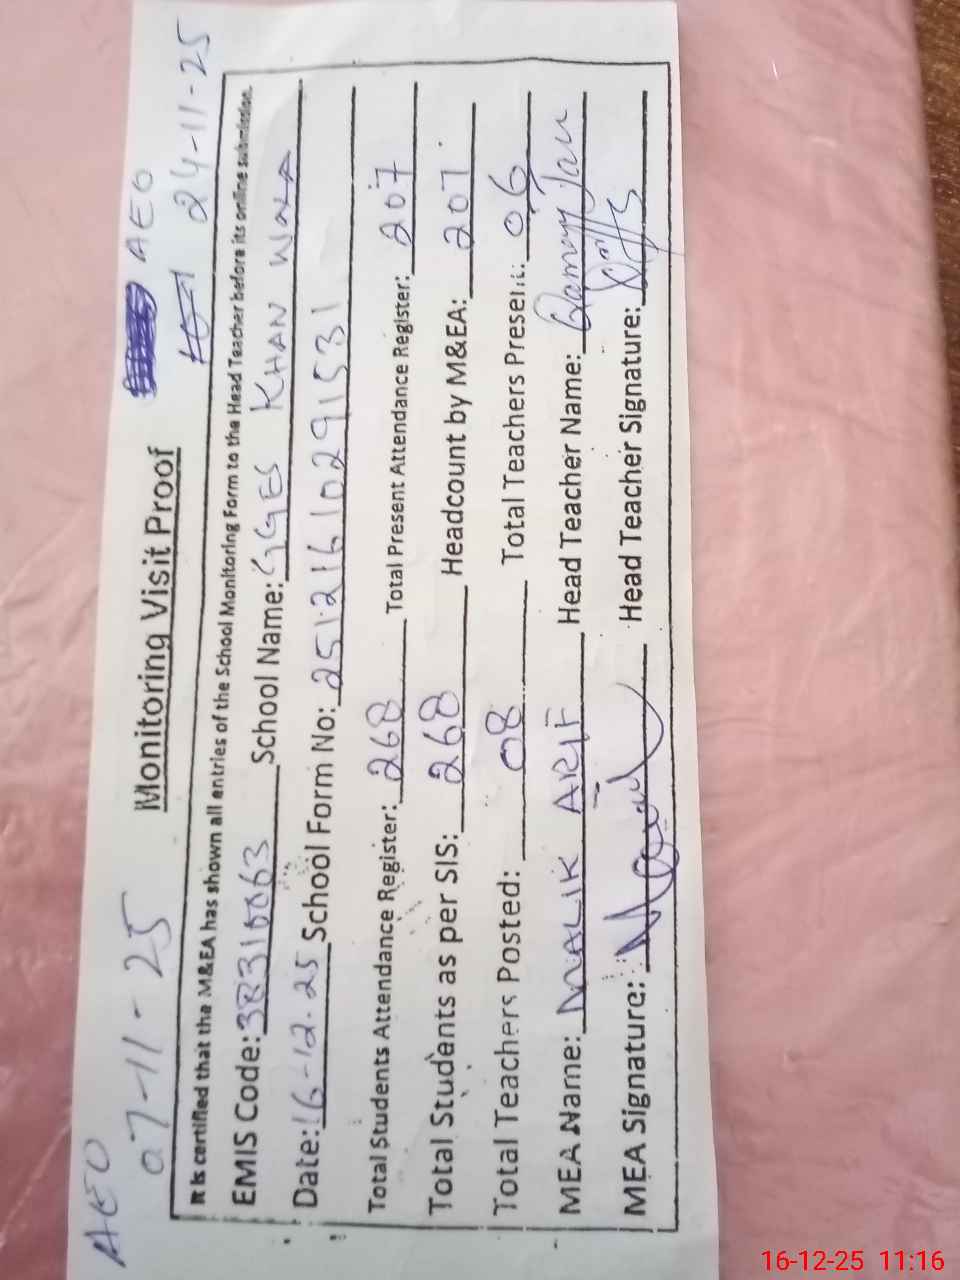 AEO
07-11-25
Monitoring Visit Proof
AEO
24-11-25
It is certified that the M&EA has shown all entries of the School Monitoring Form to the Head Teacher before its online submission.
EMIS Code: 38310063 School Name: GGES KHAN WALA
Date: 16-12-25 School Form No: 25121610291531
Total Students Attendance Register: 268 Total Present Attendance Register: 207
Total Students as per SIS: 268 Headcount by M&EA: 207
Total Teachers Posted: 08 Total Teachers Present: 06
MEA Name: MALIK ARIF Head Teacher Name:
MEA Signature: Head Teacher Signature:
16-12-25 11:16